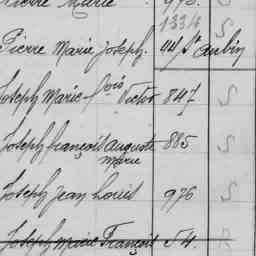 Pierre Marie 973. S
1334
Pierre Marie Joseph. 44/St Aubin S
Joseph Marie-François Victor 847 S
Joseph François Auguste 885 S
Marie
Joseph Jean Louis 976 S
Joseph Marie François 54. R